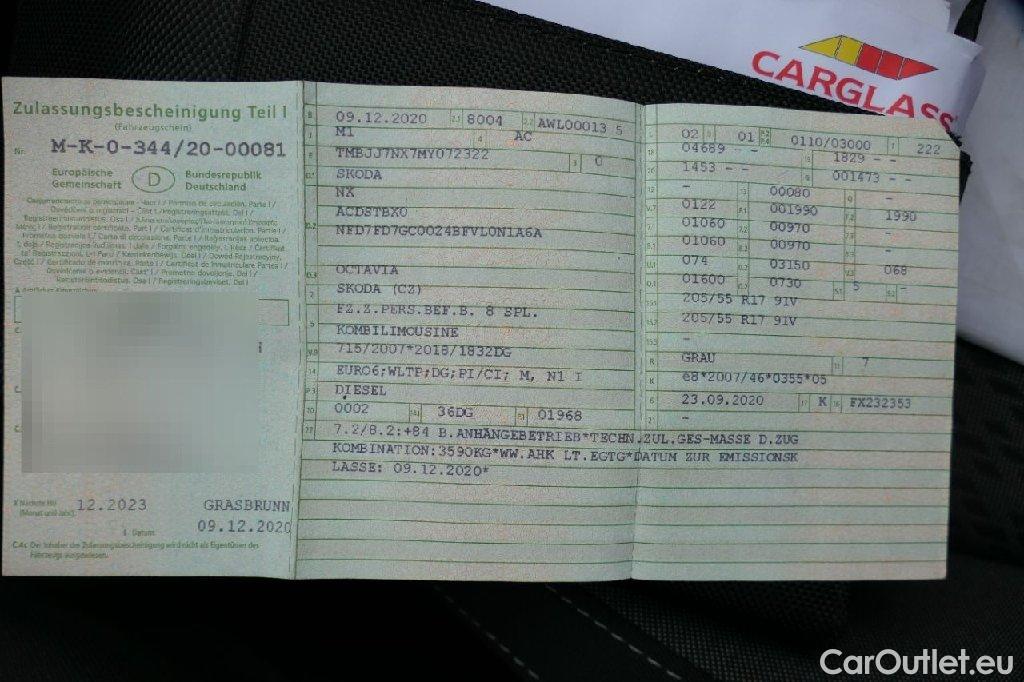 CARGLASS
Zulassungsbescheinigung Teil I
(Fahrzeugschein)
Nr. M-K-0-344/20-00081
Europäische Gemeinschaft
D
Bundesrepublik Deutschland
12.2023
GRASBRUNN
09.12.2020
C.4c Der Inhaber der Zulassungsbescheinigung wird nicht als Eigentümer des
Fahrzeugs ausgewiesen.
B 09.12.2020 2.1 8004 2.2 AWL00013 5
J M1 4 AC
E TMBJJ7NX7MY072322 3 0
D.1 SKODA
NX
ACDSTBX0
D.2 NFD7FD7GC0024BFVL0N1A6A
D.3 OCTAVIA
2 SKODA (CZ)
FZ.Z.PERS.BEF.B. 8 SPL.
5 KOMBILIMOUSINE
V.9 715/2007*2018/1832DG
14 EURO6;WLTP;DG;PI/CI; M, N1 I
P.3 DIESEL
10 0002 14.1 36DG P.1 01968
22 7.2/8.2:+84 B.ANHÄNGEBETRIEB*TECHN.ZUL.GES-MASSE D.ZUG
KOMBINATION:3590KG*WW.AHK LT.EGTG*DATUM ZUR EMISSIONSK
LASSE: 09.12.2020*
L 02 9 01 0110/03000 T 222
18 04689 - - 19 1829 - -
20 1453 - - G 001473 - -
12 - 13 00080 Q -
V.7 0122 F.1 001990 F.2 1990
7.1 01060 7.2 00970 7.3 -
8.1 01060 8.2 00970 8.3 -
U.1 074 U.2 03150 U.3 068
O.1 01600 O.2 0730 S.1 5 S.2 -
15.1 205/55 R17 91V
15.2 205/55 R17 91V
15.3 -
R GRAU 11 7
K e8*2007/46*0355*05
6 23.09.2020 17 K 16 FX232353
21 -
CarOutlet.eu